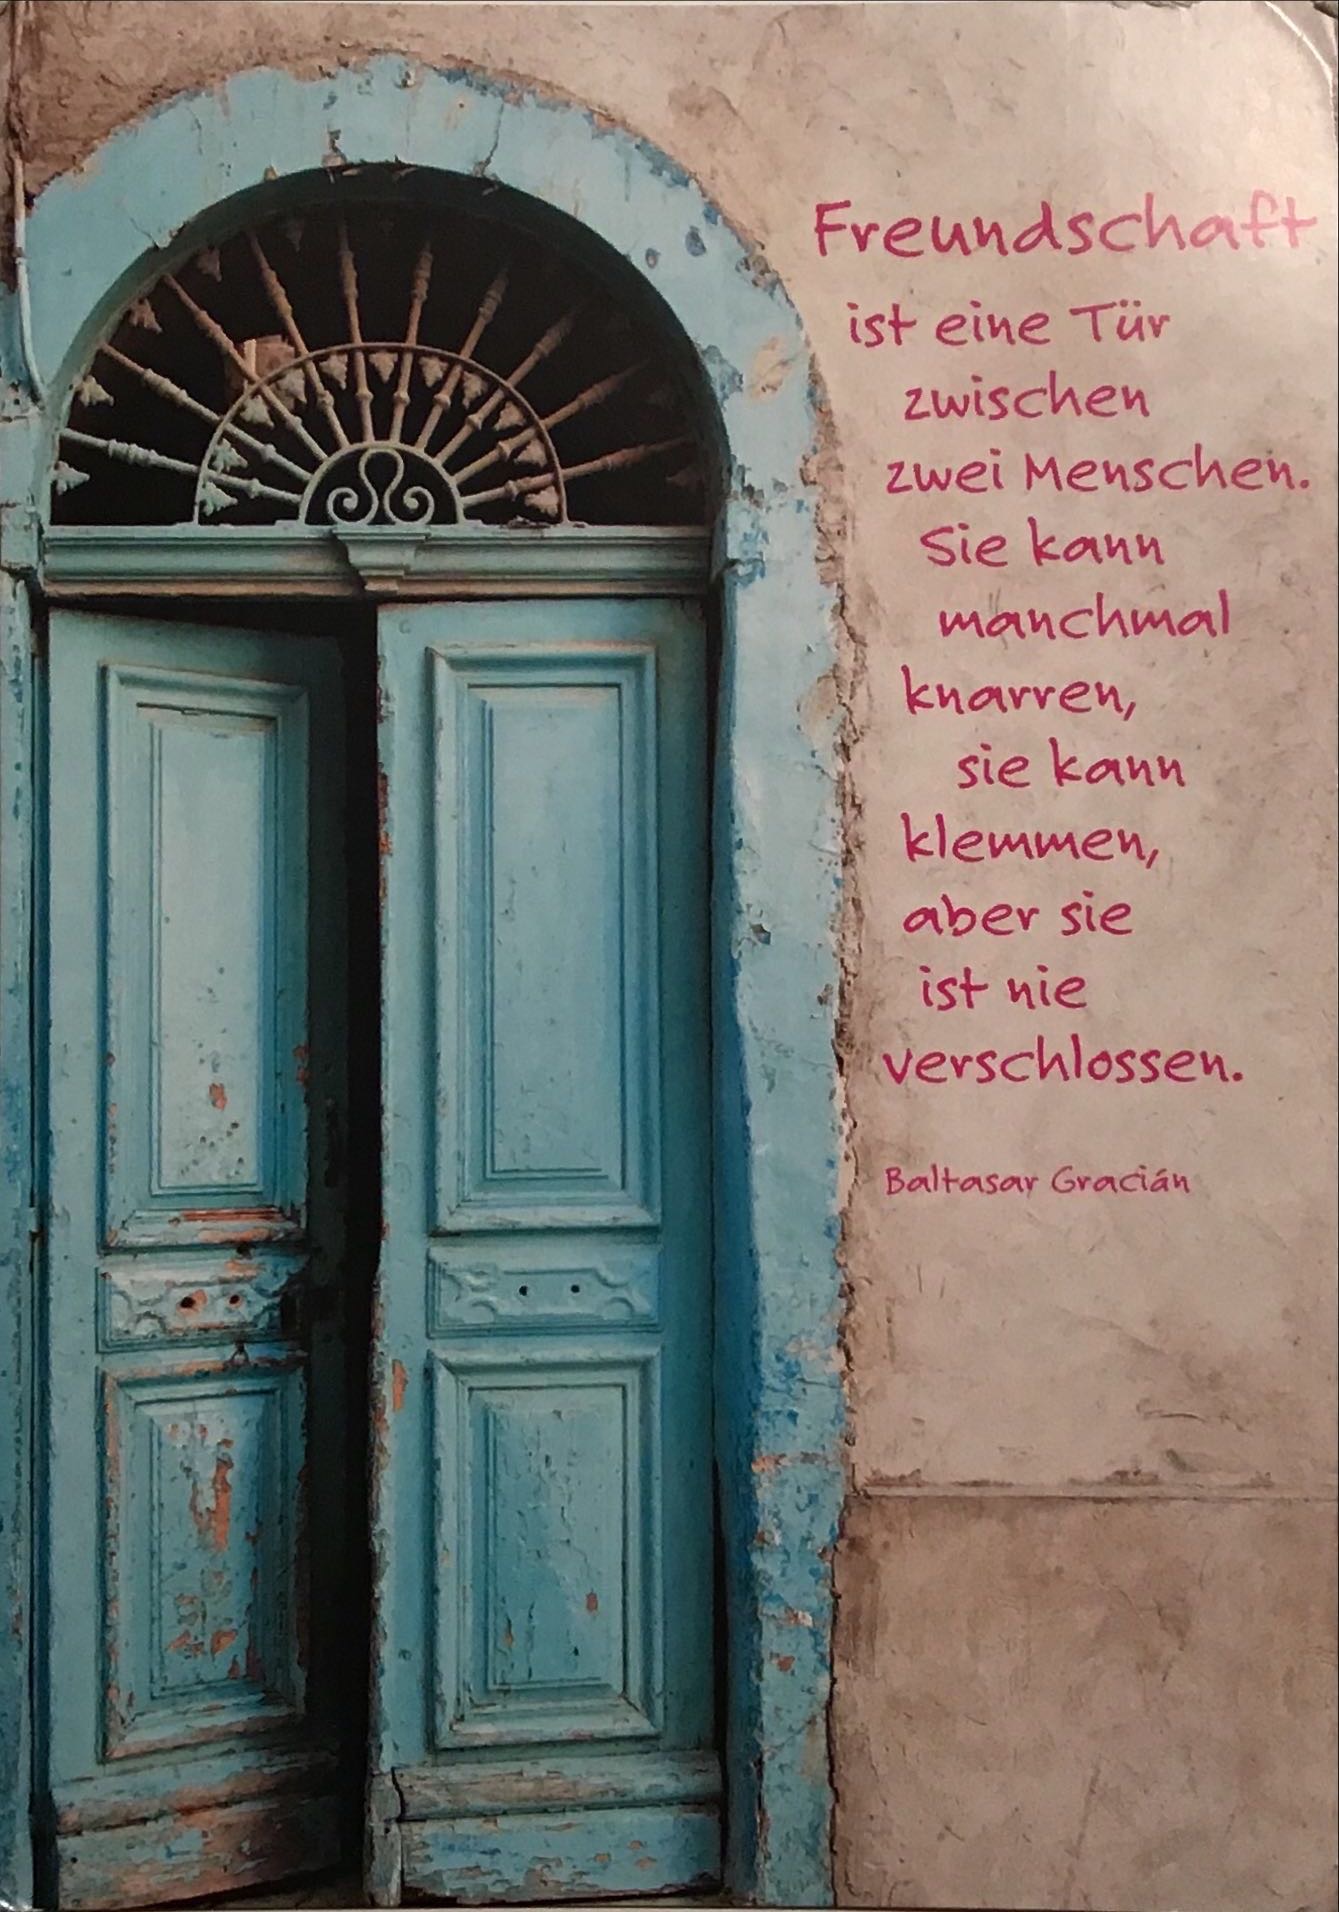 Freundschaft
ist eine Tür
zwischen
zwei Menschen.
Sie kann
manchmal
knarren,
sie kann
klemmen,
aber sie
ist nie
verschlossen.
Baltasar Gracián